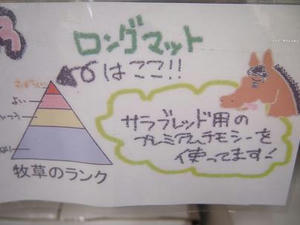 ロングマット
はここ!!
よい
サラブレッド用の
プレミアムチモシーを
使ってます!
牧草のランク